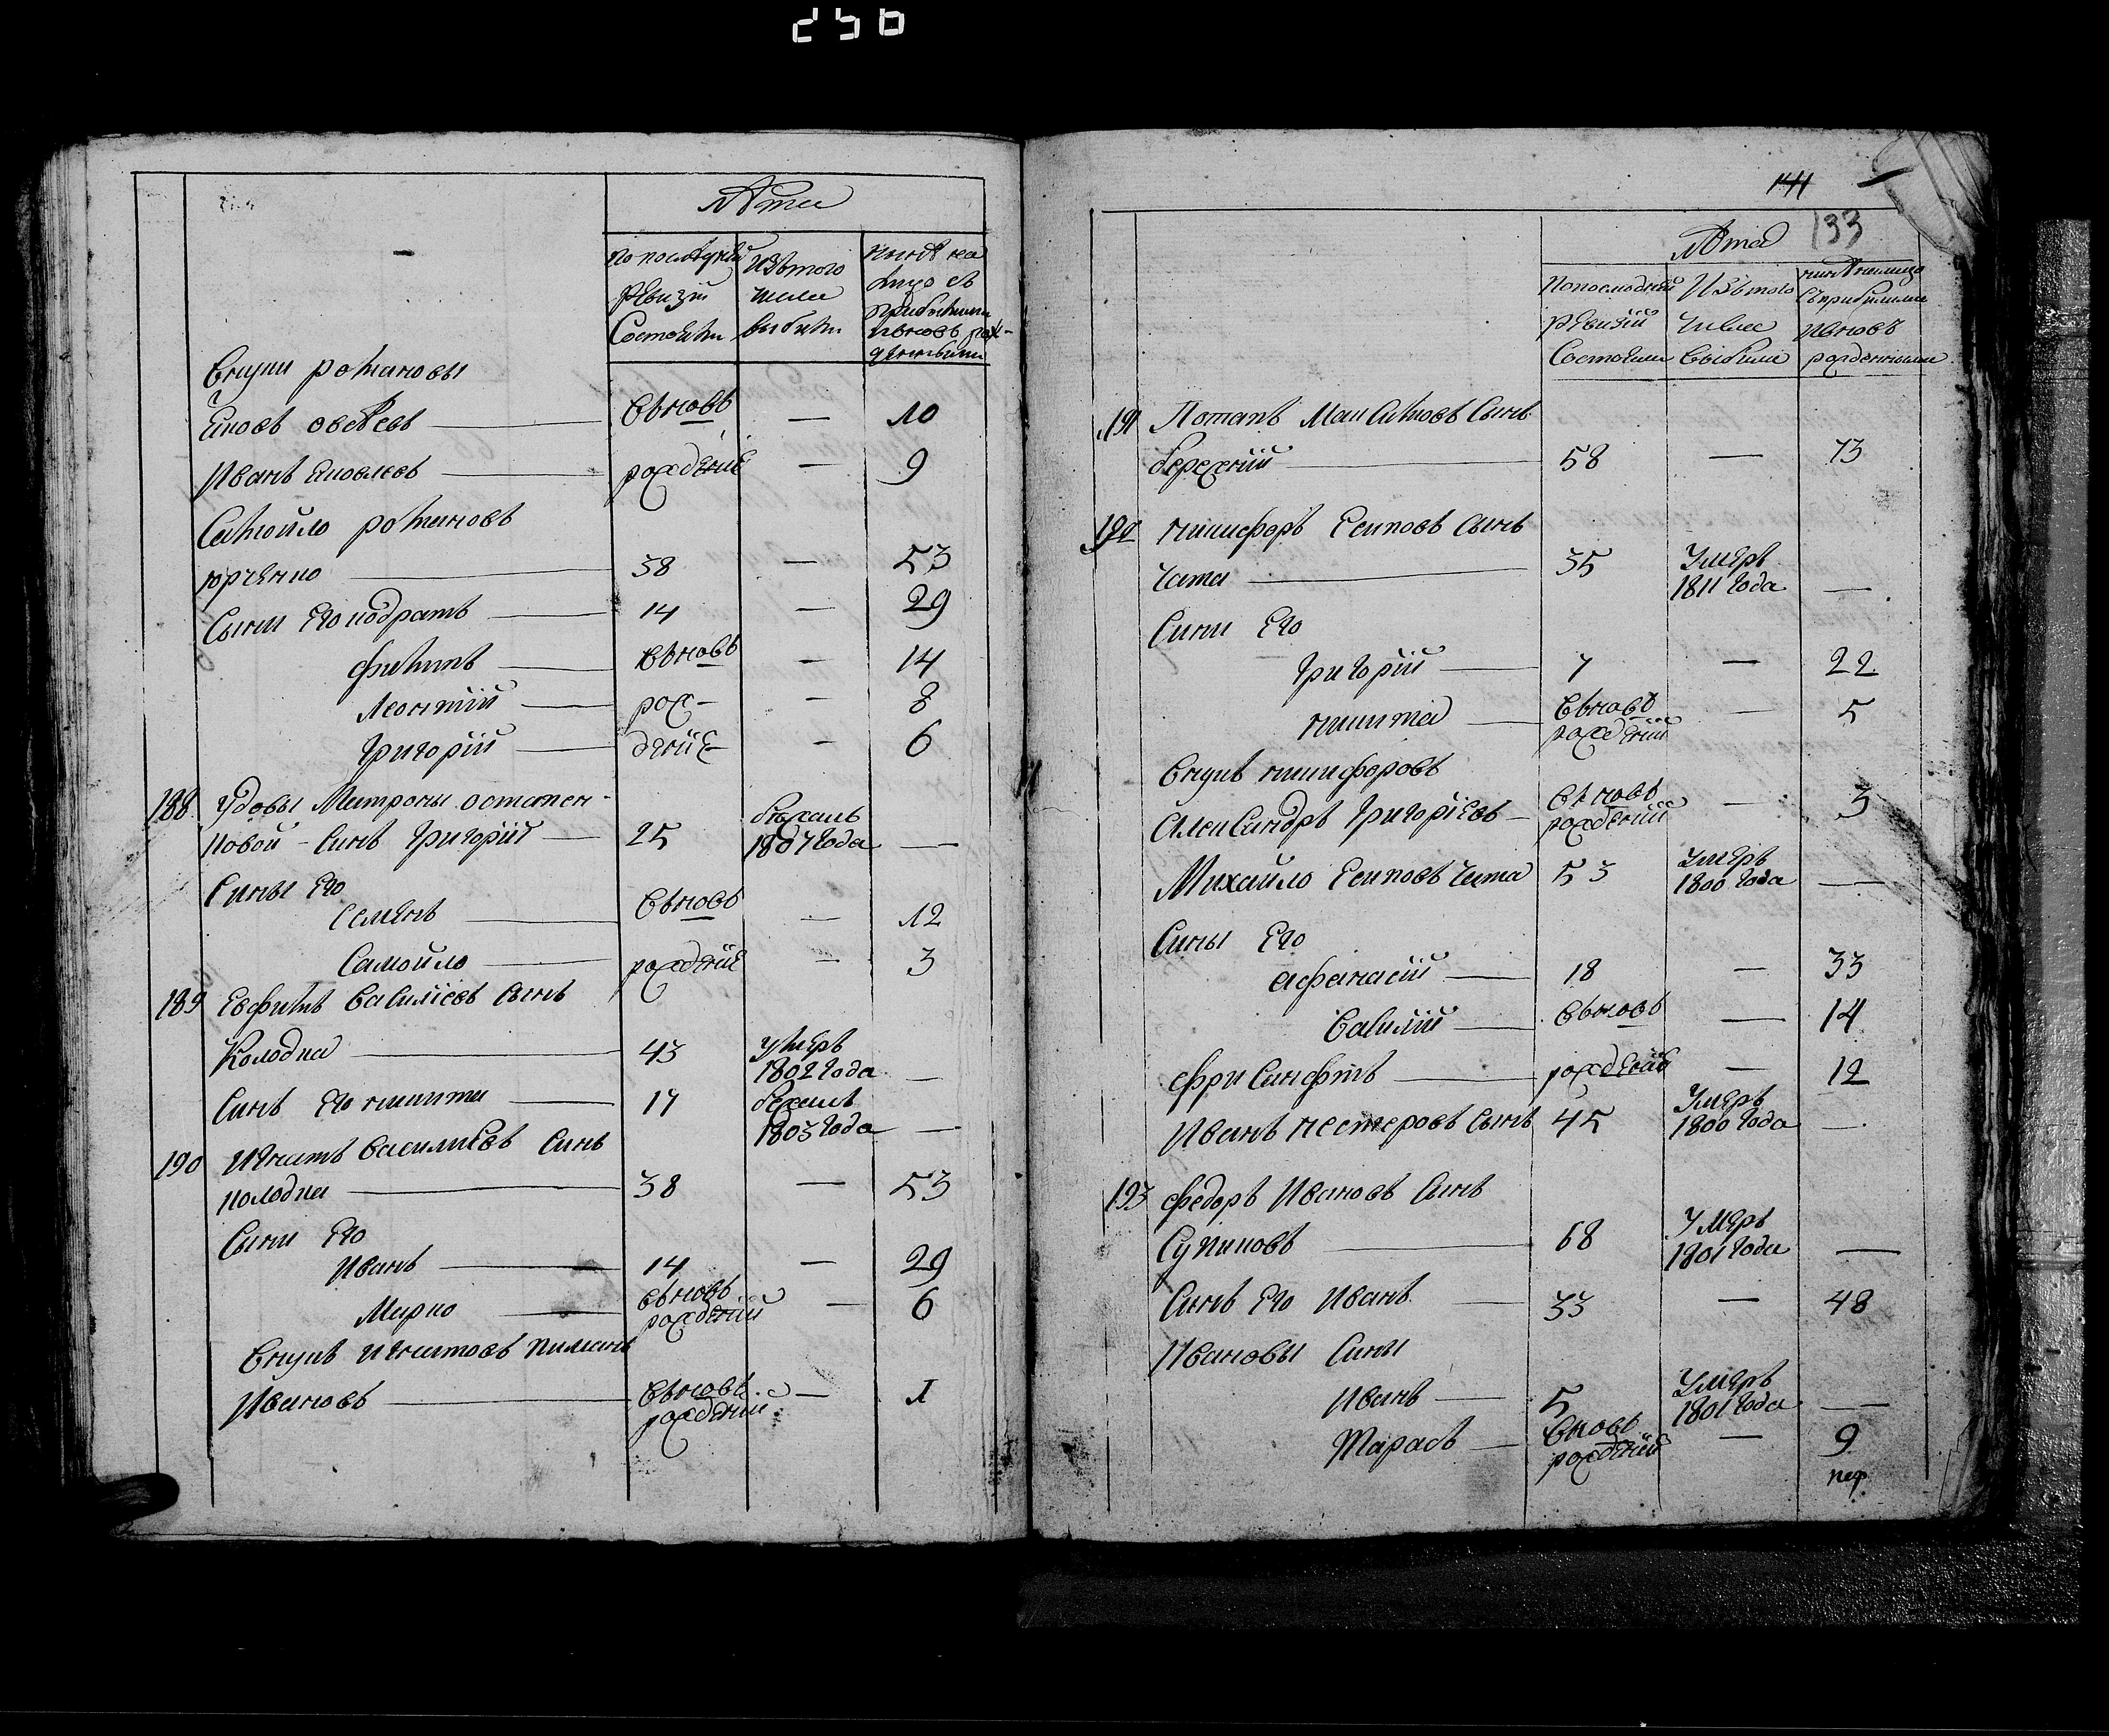 256
Лѣта
По последней Ревизіи Состояли
Изъ того числа выбыли
Нынѣ на лицо съ прибылыми и вновь рожденными
внуки романовы
Яковъ овсѣевъ вновь — 10
Иванъ яковлевъ рожденіе — 9
Самойло романовъ
юрченко 38 — 53
Сыны Его кодратъ 14 — 29
фи вновь — 14
Леонтій рож- — 8
Григорій деніе — 6
188 Удовы Матроны остапен-
ковой - Синъ Григорій 25 бежалъ 1807 Года —
Сины Его
Семенъ вновь — 12
Самойло рожденіе — 3
189 Евфимъ Василіевъ Сынъ
Колодка 43 умеръ 1802 Года —
Синъ Его никита 17 бежалъ 1803 Года —
190 Игнатъ Василиевъ Синъ
колодка 38 — 53
Сыни Его
Иванъ 14 — 29
Марко вновь рожденій — 6
Внукъ игнатовъ
Ивановъ вновь рожденій — 1
141
133
Лѣта
По последней ревизіи Состояли
Изъ того Числа Выбыли
нинѣ налицо съ прибылими и вновь рожденними
191 Потапъ Сынъ
бережній 58 — 73
192 никифоръ Есиповъ Сынъ
Чата 35 Умеръ 1811 Года —
Сини Его
Григорій 7 — 22
никита вновь рожденій — 5
Внукъ никифоровъ
Александръ Григоріевъ вновь рожденій — 3
Михайло Есиповъ Чата 53 Умеръ 1800 Года —
Сины Его
афанасій 18 — 33
Василій вновь — 14
рожденіе — 12
Иванъ нестеровъ Сынъ 45 Умеръ 1800 Года —
193 федоръ Ивановъ Синъ
Супиковъ 68 Умеръ 1801 Года —
Синъ Его Иванъ 33 — 48
Ивановы Сины
Иванъ 5 Умеръ 1801 Года —
Тарасъ вновь рожденій — 9